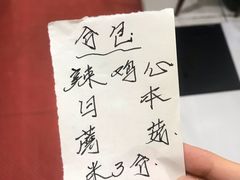 分包
辣鸡心
日本
蘑菇.
米3分.